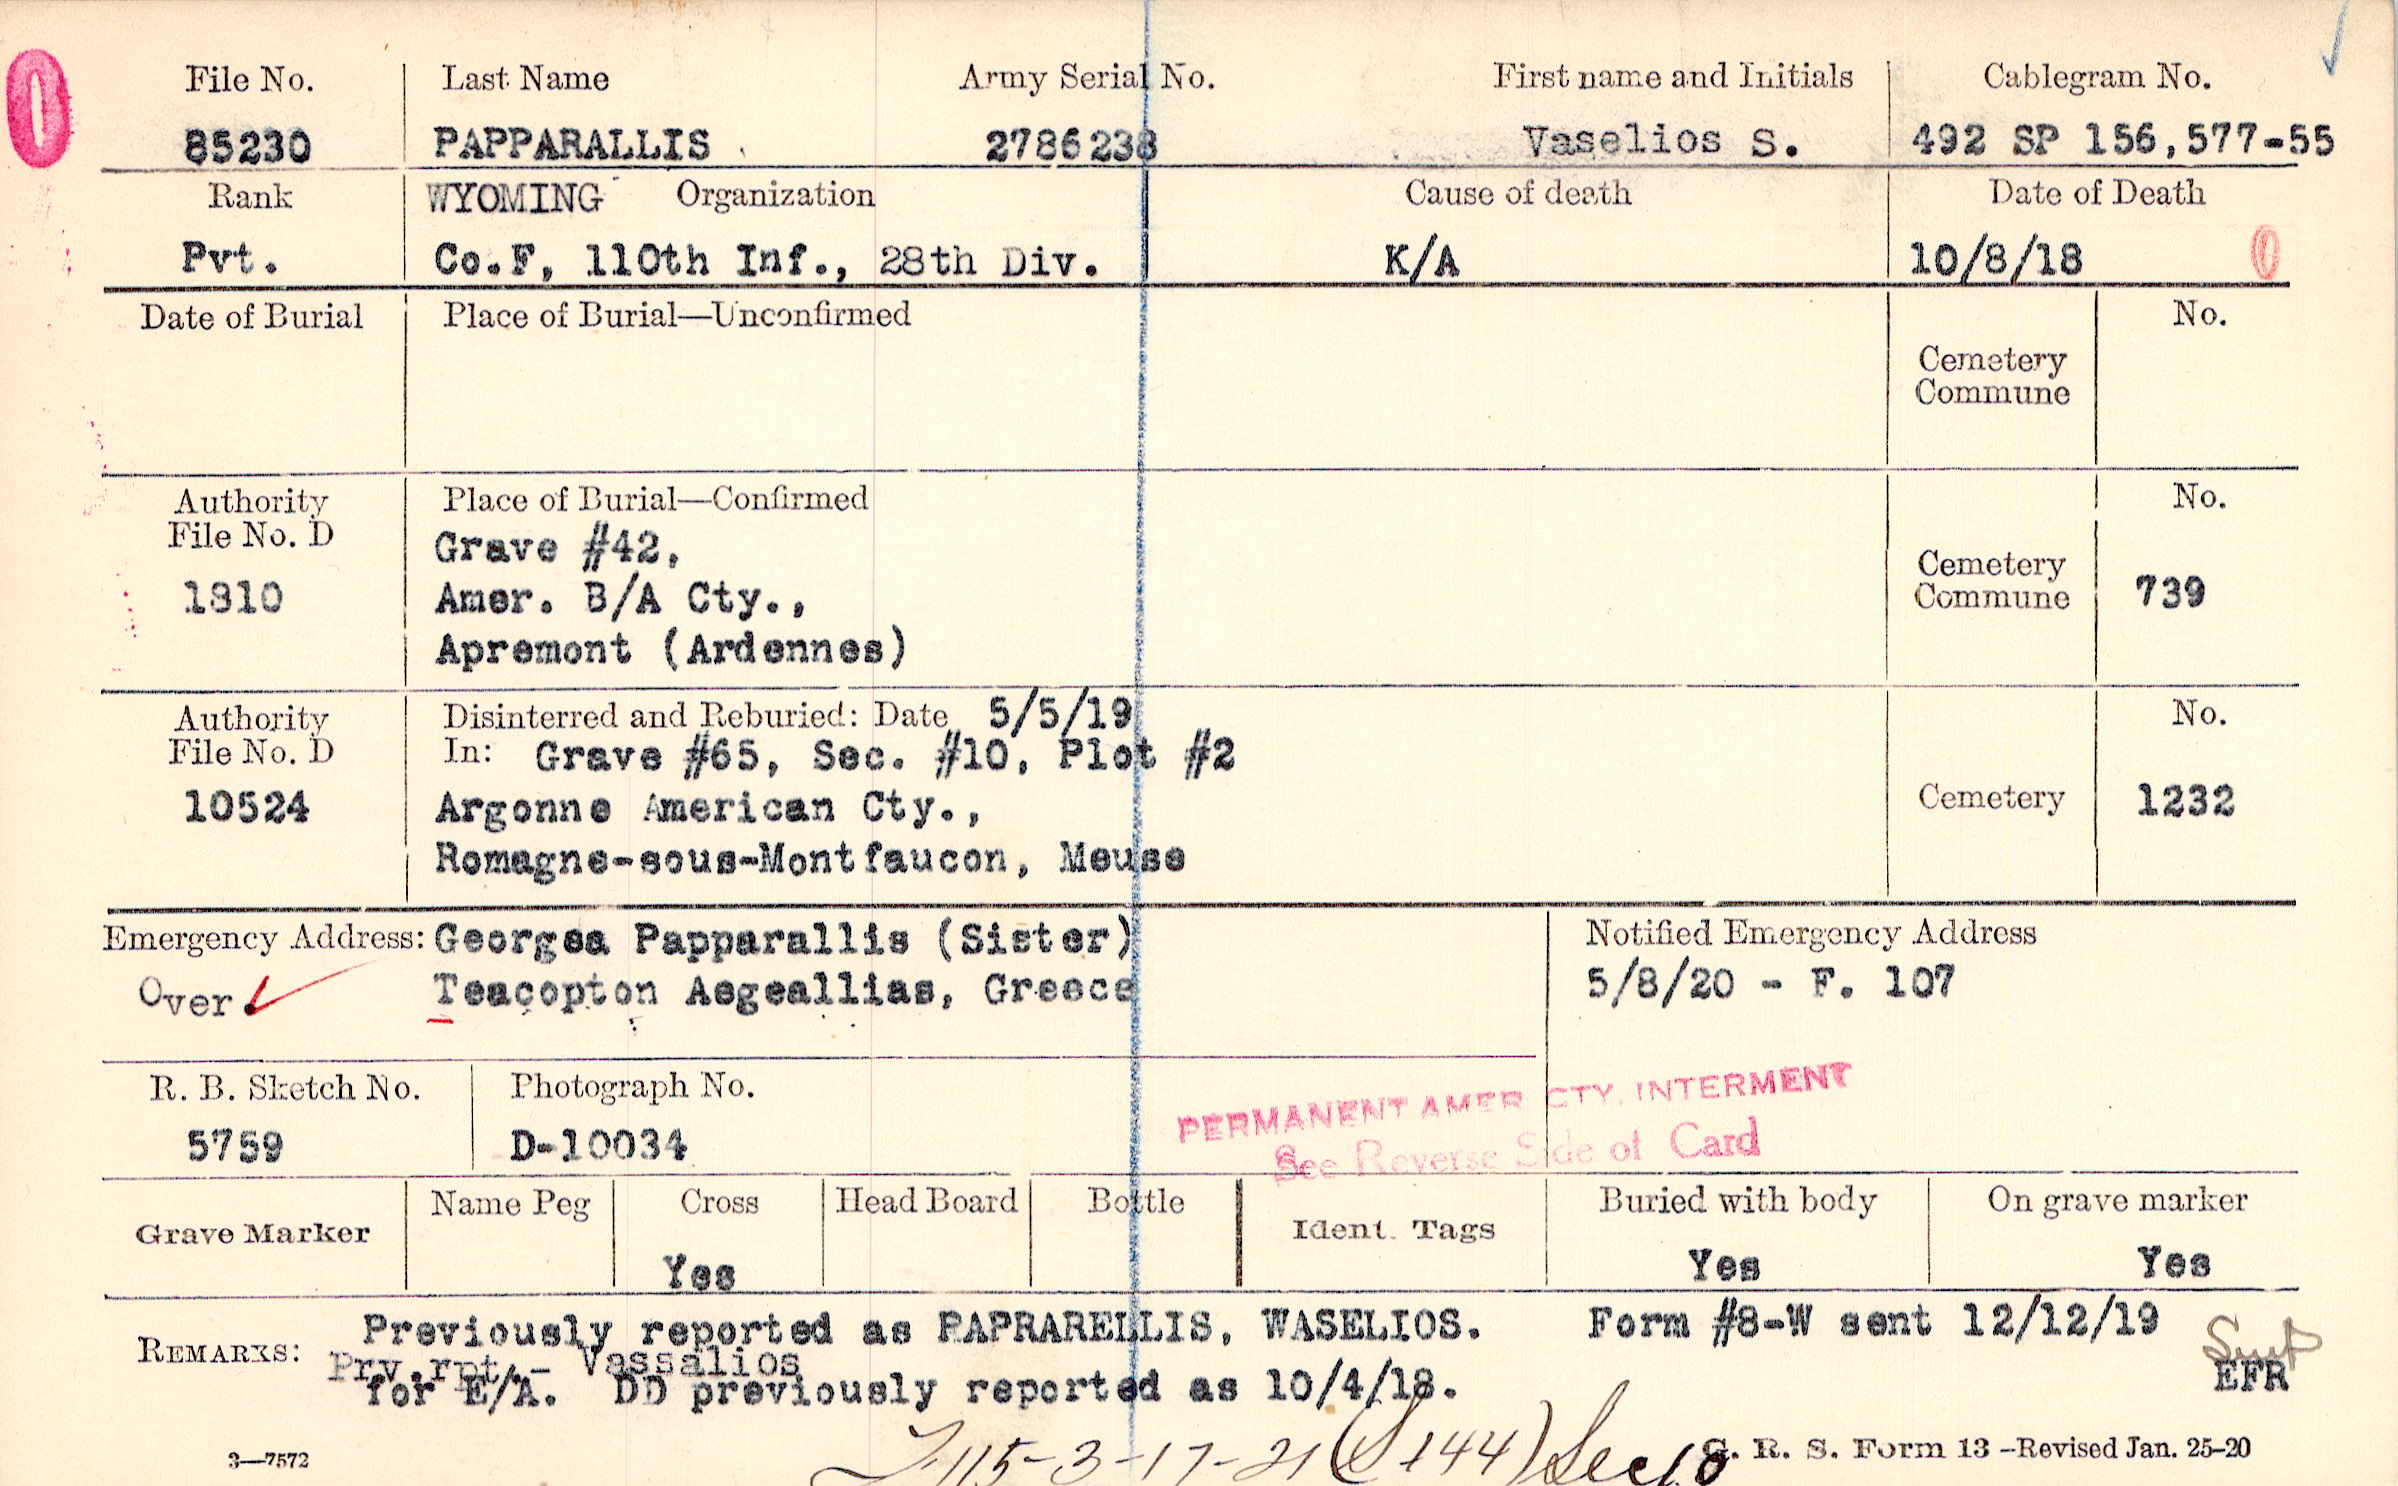 File No. Last Name Army Serial No. First name and Initials Cablegram No.
85230 PAPPARALLIS 2786238 Vaselios S. 492 SP 156,577-55
Rank WYOMING Organization Cause of death Date of Death
Pvt. Co.F, 110th Inf., 28th Div. K/A 10/8/18 0
Date of Burial Place of Burial—Unconfirmed No.
Cemetery
Commune
Authority Place of Burial—Confirmed No.
File No. D
Grave #42,
1810 Amer. B/A Cty., Cemetery
Commune 739
Apremont (Ardennes)
Authority Disinterred and Reburied: Date 5/5/19 No.
File No. D In: Grave #65, Sec. #10, Plot #2
10524 Argonne American Cty., Cemetery 1232
Romagne-sous-Montfaucon, Meuse
Emergency Address: Georgea Papparallis (Sister) Notified Emergency Address
Over Teacopton Aegeallias, Greece 5/8/20 - F. 107
R. B. Sketch No. Photograph No.
5759 D-10034
PERMANENT AMER CTY. INTERMENT
See Reverse Side of Card
Grave Marker Name Peg Cross Head Board Bottle Ident. Tags Buried with body On grave marker
Yes Yes Yes
REMARKS: Previously reported as PAPRARELLIS, WASELIOS. Form #8-W sent 12/12/19
Prv.rpt.- Vassalios
for E/A. DD previously reported as 10/4/18. EFR
115-3-17-21 
3—7572 G. R. S. Form 13 –Revised Jan. 25–20